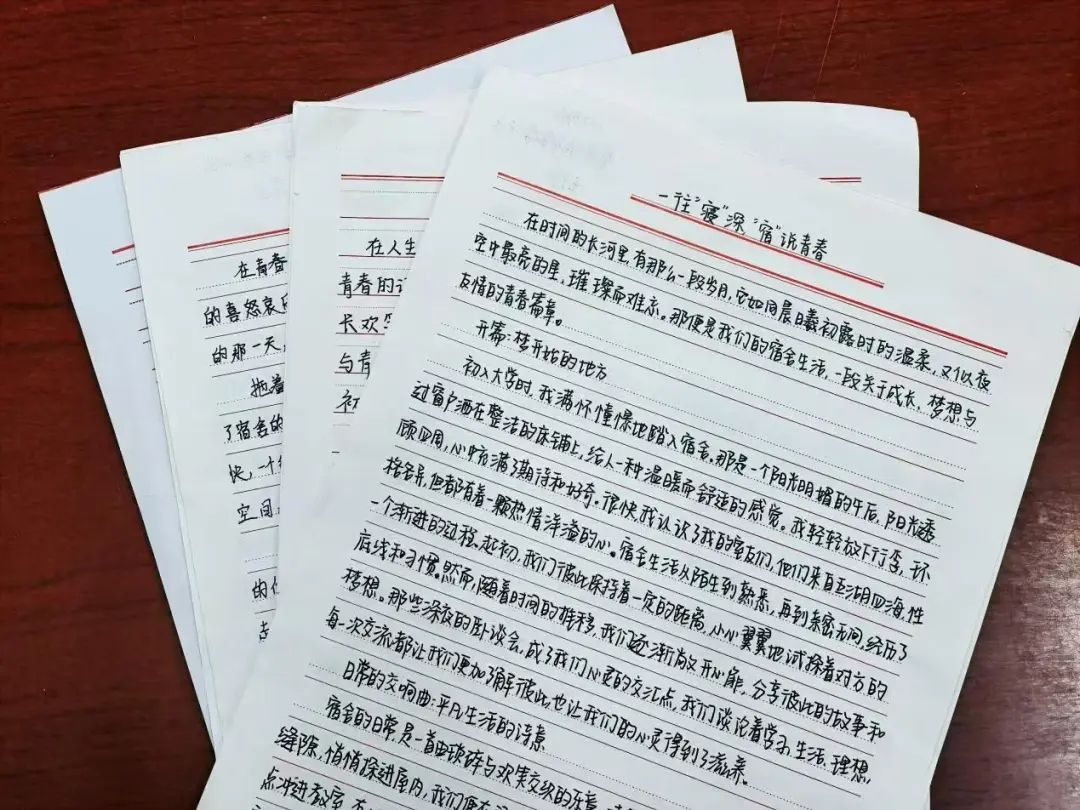 一往“寝”深 “宿”说青春
在时间的长河里,有那么一段岁月,它如同晨曦初露时的温柔,又似夜
空中最亮的星,璀璨而难忘。那便是我们的宿舍生活,一段关于成长、梦想与
友情的青春篇章。
开篇:梦开始的地方
初入大学时,我满怀憧憬地踏入宿舍。那是一个阳光明媚的午后,阳光透
过窗户洒在整洁的床铺上,给人一种温暖而舒适的感觉。我轻轻放下行李,环
顾四周,心中充满了期待和好奇。很快,我认识了我的室友们,他们来自五湖四海,性
格各异,但都有着一颗热情洋溢的心。宿舍生活从陌生到熟悉,再到亲密无间,经历了
一个渐进的过程。起初,我们彼此保持着一定的距离,小心翼翼地试探着对方的
底线和习惯。然而,随着时间的推移,我们逐渐敞开心扉,分享彼此的故事和
梦想。那些深夜的卧谈会,成了我们心灵的交汇点,我们谈论着学习、生活、理想,
每一次交流都让我们更加了解彼此,也让我们的心灵得到了滋养。
日常的交响曲:平凡生活的诗意
宿舍的日常,是一首由琐碎与欢笑交织的乐章。
缝隙,悄悄探进屋内,我们便在
点冲进教室
在人生
青春的
长欢
与青
初
在青春
的喜怒哀
的那一天
拖着
了宿舍的
快,一
空间
的